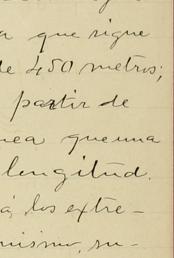 a que sigue
de 450 metros;
partir de
nea que una
longitud.
á los extre-
mismo, su-